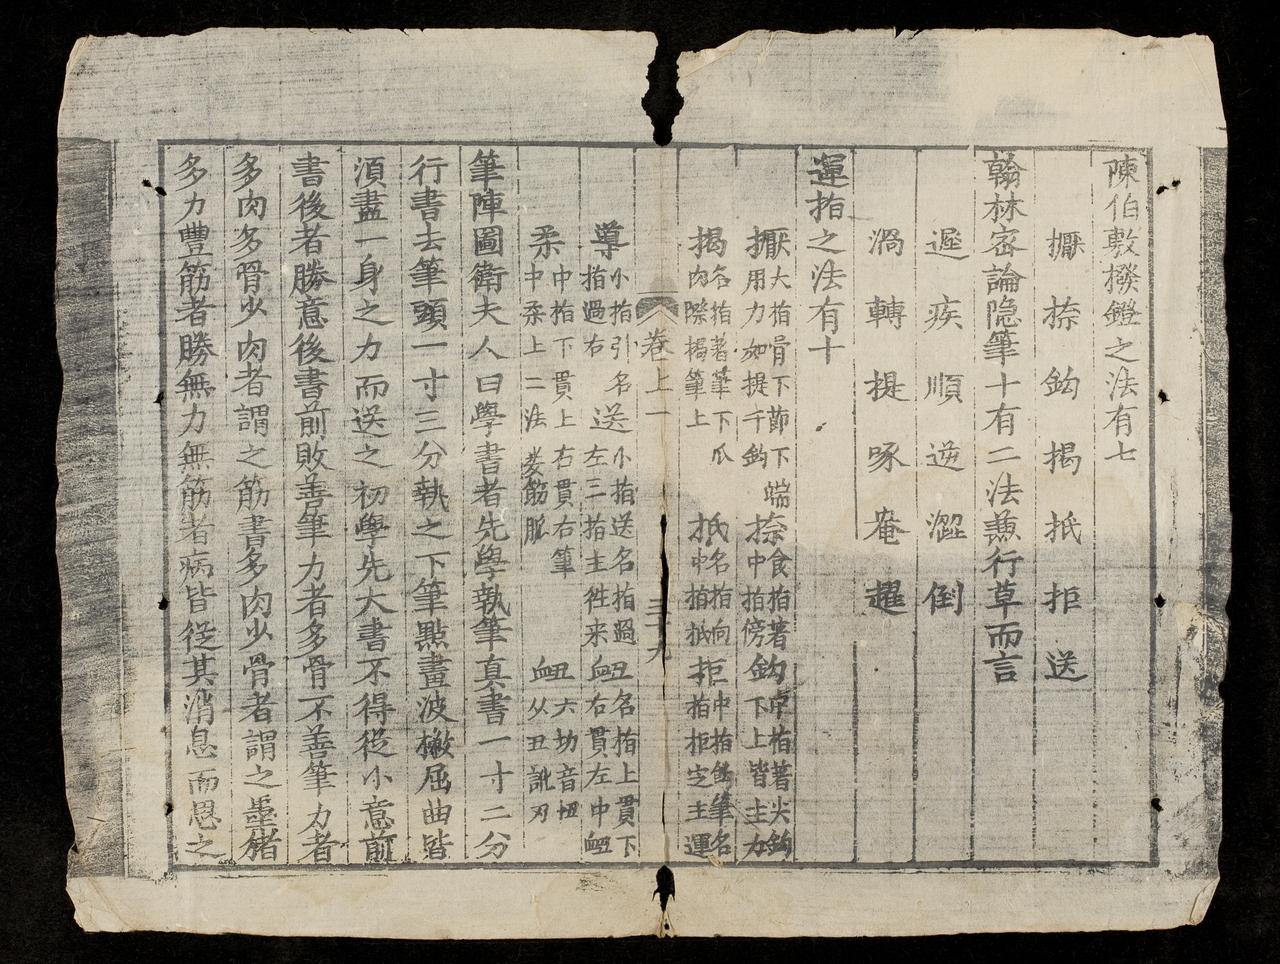 陳伯敷撥鐙之法有七
擫捺鈎揭抵拒送
翰林密論隐筆十有二法兼行草而言
遲疾順逆澀倒
渦轉提啄罨趯
運指之法有十
擫大指骨下節下端
用力如提千鈞
捺食指著
中指傍
鈎中指著尖鈎
下上皆主力
揭名指著筆下爪
肉際揭筆上
抵名指向
中指抵
拒中指鈎筆名
指拒定主運
卷上一
三十九
導小指引名
指過右
送小指送名指過
左三指主徃来
衄丑名指上貫下
右貫左中衄
柔中指下貫上右貫右筆
中柔上二法䒳筋脈
衄丑六切音忸
从丑訛刃
筆陣圖衛夫人曰學書者先學執筆真書一寸二分
行書去筆頭一寸三分執之下筆點畫波撇屈曲皆
湏盡一身之力而送之初學先大書不得従小意前
書後者勝意後書前敗善筆力者多骨不善筆力者
多肉多骨少肉者謂之筋書多肉少骨者謂之墨猪
多力豐筋者勝無力無筋者病皆従其消息而思之